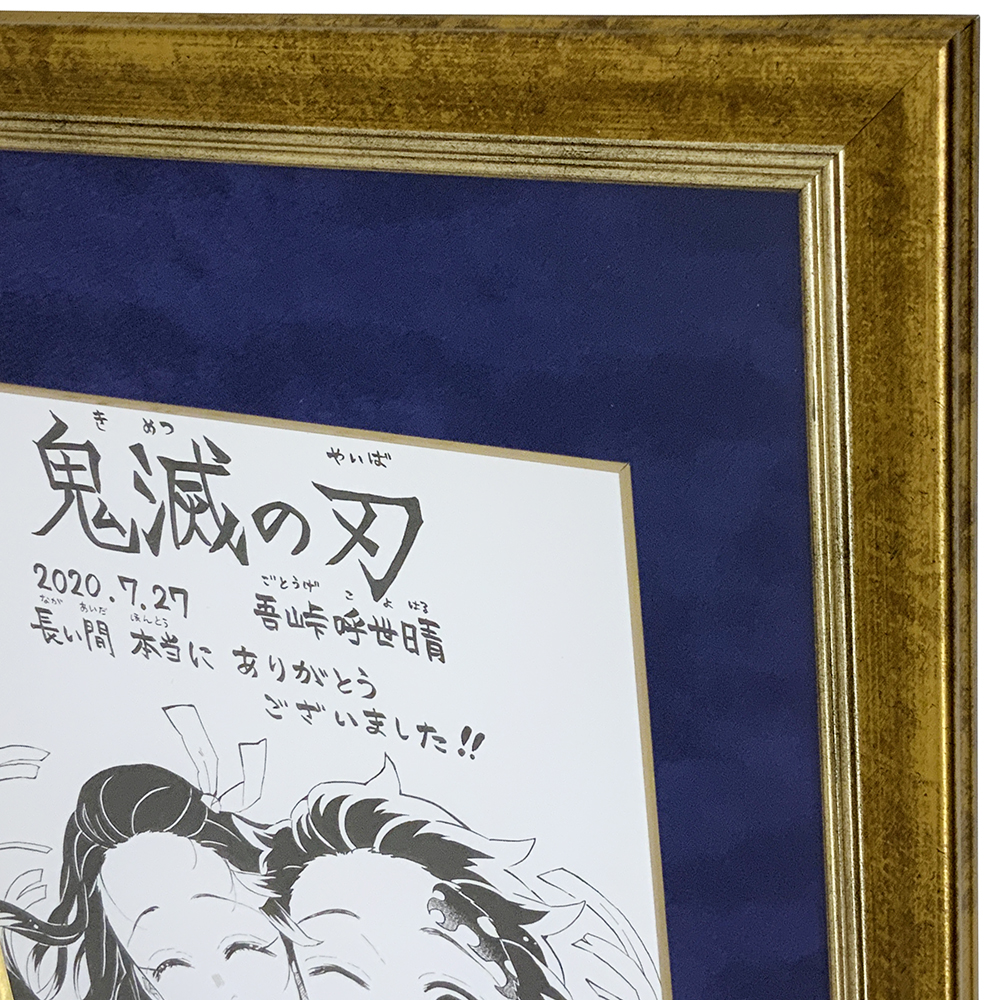 きめつ やいば
鬼滅の刃
2020.7.27
ごとうげ こよはる
吾峠呼世晴
ながあいだ ほんとう
長い間 本当に ありがとう
ございました!!